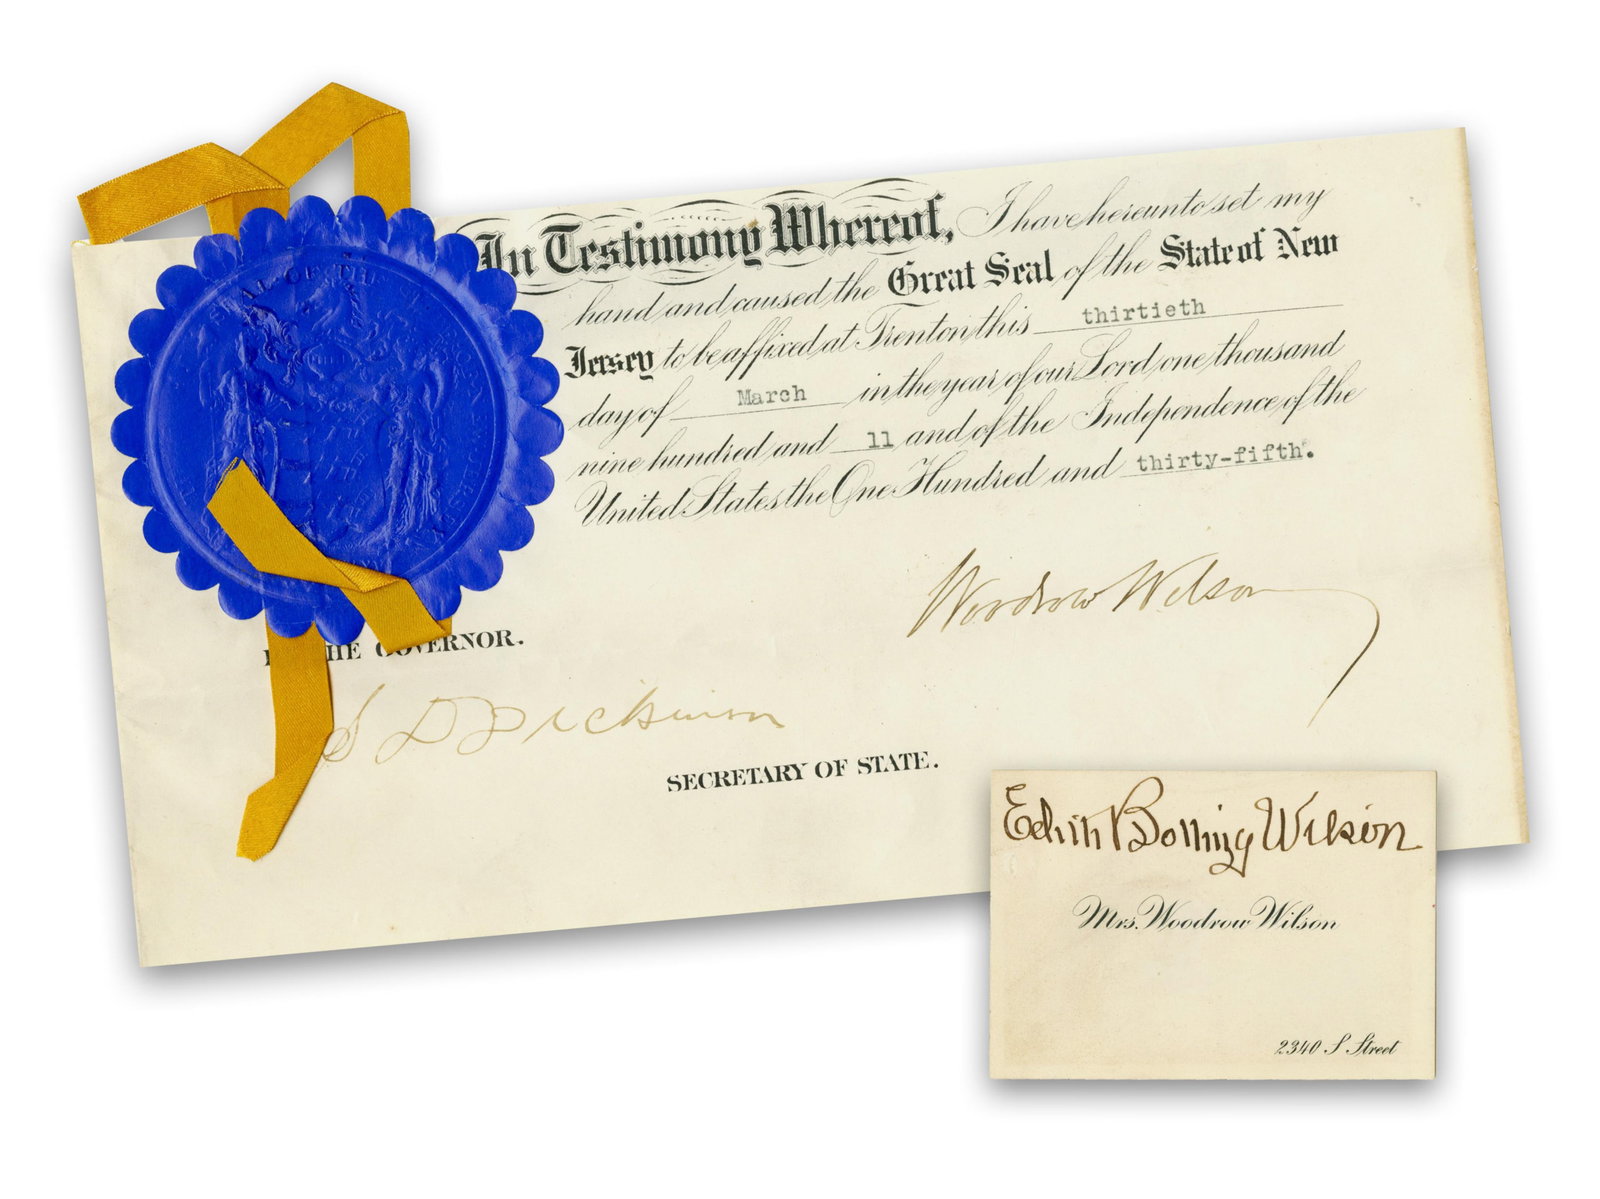 In Testimony Whereof, I have hereunto set my
hand and caused the Great Seal of the State of New
Jersey to be affixed at Trenton this thirtieth
day of March in the year of our Lord one thousand
nine hundred and 11 and of the Independence of the
United States the One Hundred and thirty-fifth.
Woodrow Wilson
HE GOVERNOR.
S D Dickinson
SECRETARY OF STATE.
SEAL OF THE
Edith Bolling Wilson
Mrs. Woodrow Wilson
2340 S Street